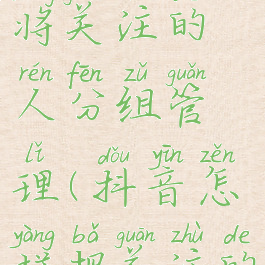 将关注的
rén fēn zǔ guǎn
人分组管
lǐ dǒu yīn zěn
理(抖音怎
yàng bǎ guān zhù de
样把关注的